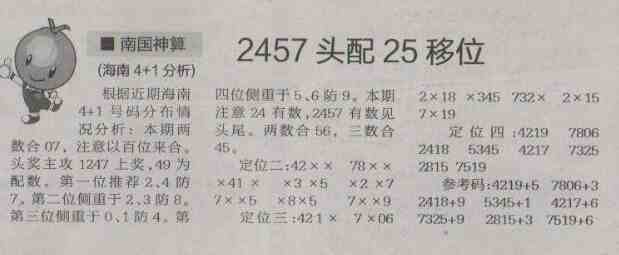 ■南国神算
(海南4+1分析)
2457头配25移位
根据近期海南
4+1号码分布情
况分析：本期两
数合07，注意以百位来合。
头奖主攻1247上奖，49为
配数。第一位推荐2、4防
7。第二位侧重于2、3防8。
第三位侧重于0、1防4。第
四位侧重于5、6防9。本期
注意24有数，2457有数见
头尾。两数合56，三数合
45。
定位二：42×× 78××
×41× ×3×5 ×2×7
7××5 ×8×5 7××9
定位三：421× 7×06
2×18 ×345 732× 2×15
7×19
定位四：4219 7806
2418 5345 4217 7325
2815 7519
参考码：4219+5 7806+3
2418+9 5345+1 4217+6
7325+9 2815+3 7519+6